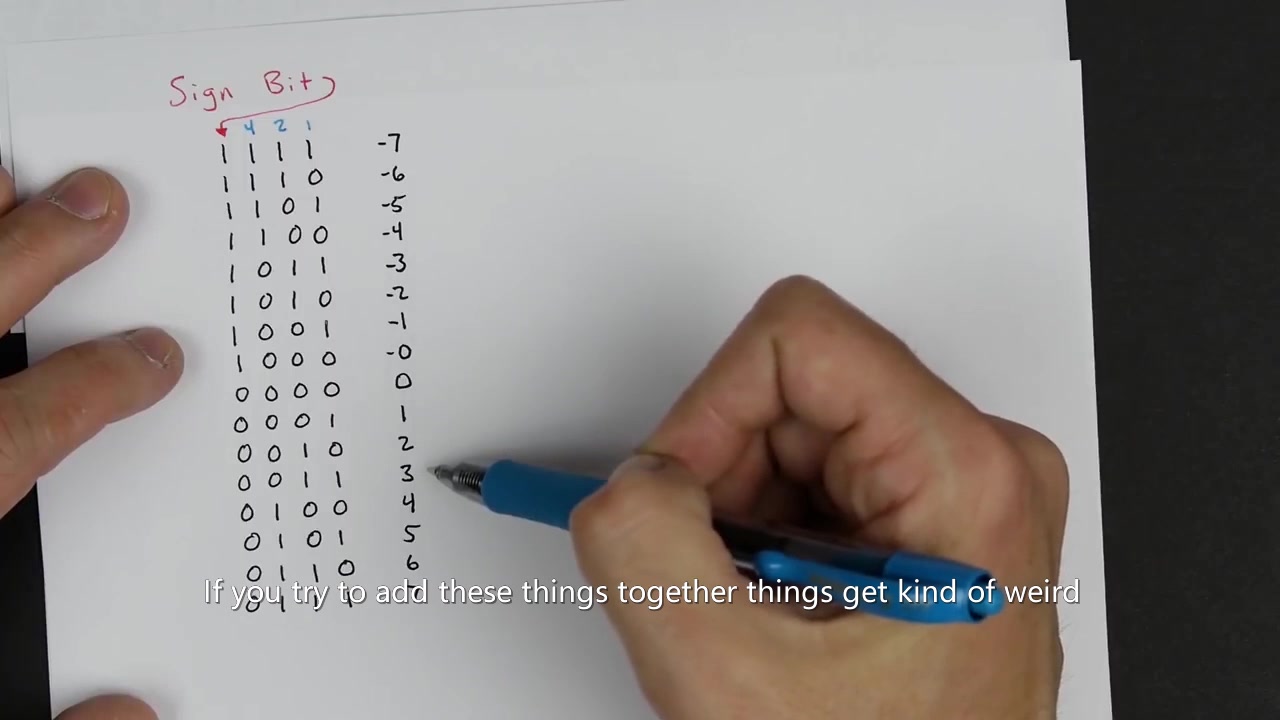 Sign Bit
4 2 1
1 1 1 1 -7
1 1 1 0 -6
1 1 0 1 -5
1 1 0 0 -4
1 0 1 1 -3
1 0 1 0 -2
1 0 0 1 -1
1 0 0 0 -0
0 0 0 0 0
0 0 0 1 1
0 0 1 0 2
0 0 1 1 3
0 1 0 0 4
0 1 0 1 5
0 1 1 0 6
If you try to add these things together things get kind of weird
0 1 1 1